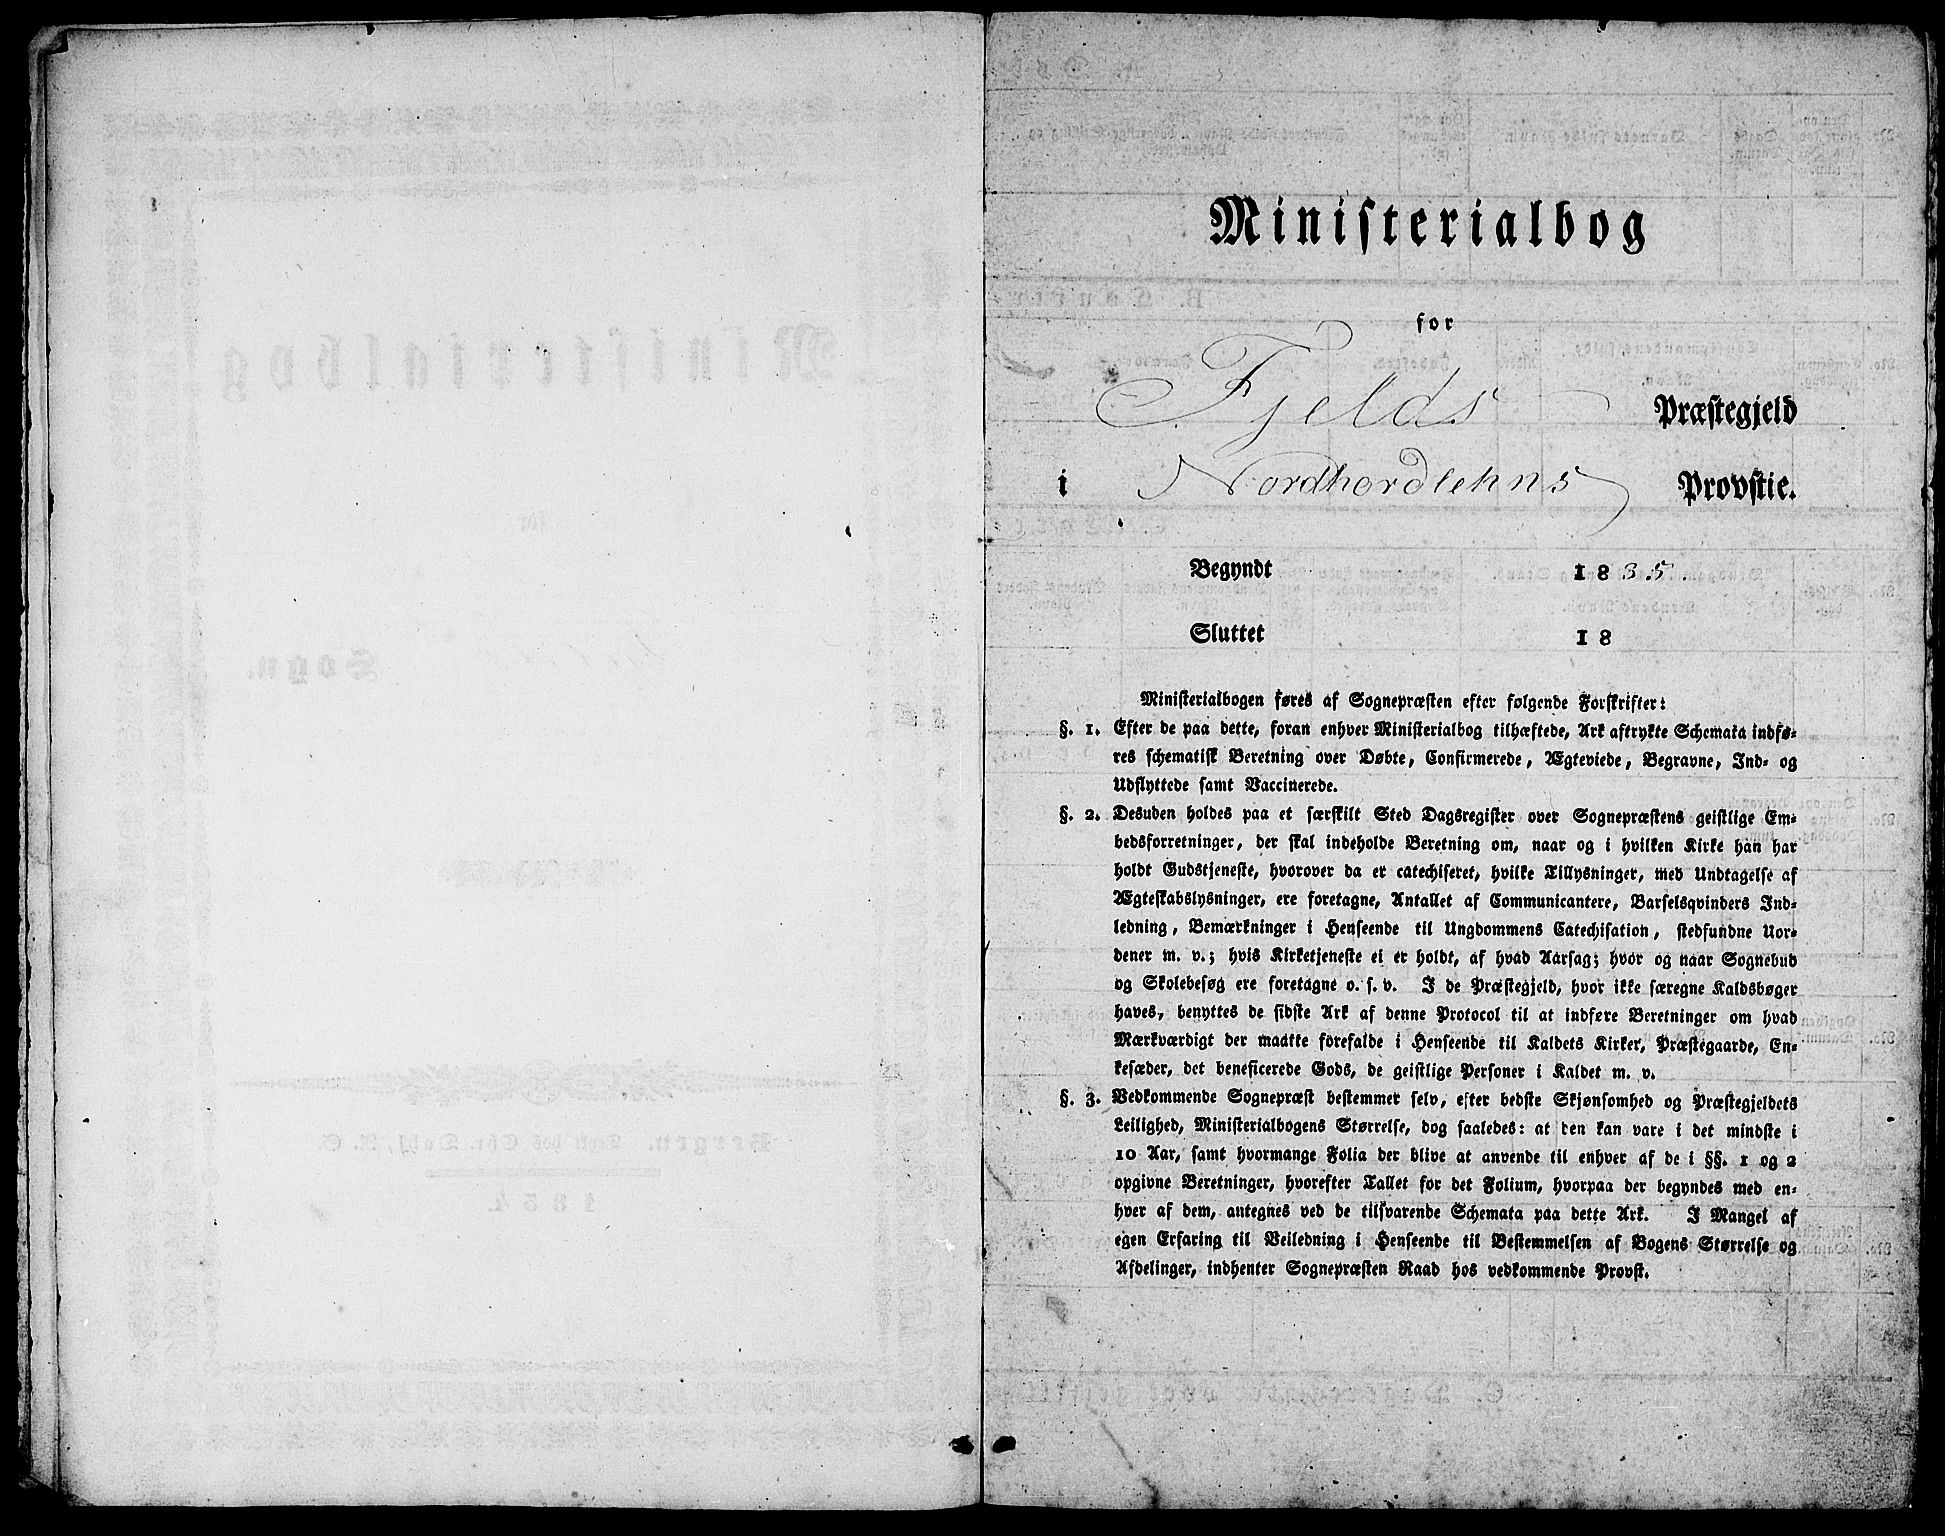 Ministerialbog
for
Fjelds Præstegjeld
i Nordhordlehns Provstie.
Begyndt 1835.
Sluttet 18
Ministerialbogen føres af Sognepræsten efter følgende Forskrifter:
§. 1. Efter de paa dette, foran enhver Ministerialbog tilhæftede, Ark aftrykte Schemata indfø-
res schematisk Beretning over Døbte, Confirmerede, Ægteviede, Begravne, Ind- og
Udflyttede samt Vaccinerede.
§. 2. Desuden holdes paa et særskilt Sted Dagsregister over Sognepræstens geistlige Em-
bedsforretninger, der skal indeholde Beretning om, naar og i hvilken Kirke han har
holdt Gudstjeneste, hvorover da er catechiseret, hvilke Tillysninger, med Undtagelse af
Ægteskabslysninger, ere foretagne, Antallet af Communicantere, Barselsqvinders Ind-
ledning, Bemærkninger i Henseende til Ungdommens Catechisation, stedfundne Uor-
dener m. v.; hvis Kirketjeneste ei er holdt, af hvad Aarsag; hvor og naar Sognebud
og Skolebesøg ere foretagne o. s. v. I de Præstegjeld, hvor ikke særegne Kaldsbøger
haves, benyttes de sidste Ark af denne Protocol til at indføre Beretninger om hvad
Mærkværdigt der maatte forefalde i Henseende til Kaldets Kirker, Præstegaarde, En-
kesæder, det beneficerede Gods, de geistlige Personer i Kaldet m. v.
§. 3. Vedkommende Sognepræst bestemmer selv, efter bedste Skjønsomhed og Præstegjeldets
Leilighed, Ministerialbogens Størrelse, dog saaledes: at den kan vare i det mindste i
10 Aar, samt hvormange Folia der blive at anvende til enhver af de i §§. 1 og 2
opgivne Beretninger, hvorefter Tallet for det Folium, hvorpaa der begyndes med en-
hver af dem, antegnes ved de tilsvarende Schemata paa dette Ark. I Mangel af
egen Erfaring til Veiledning i Henseende til Bestemmelsen af Bogens Størrelse og
Afdelinger, indhenter Sognepræsten Raad hos vedkommende Provst.